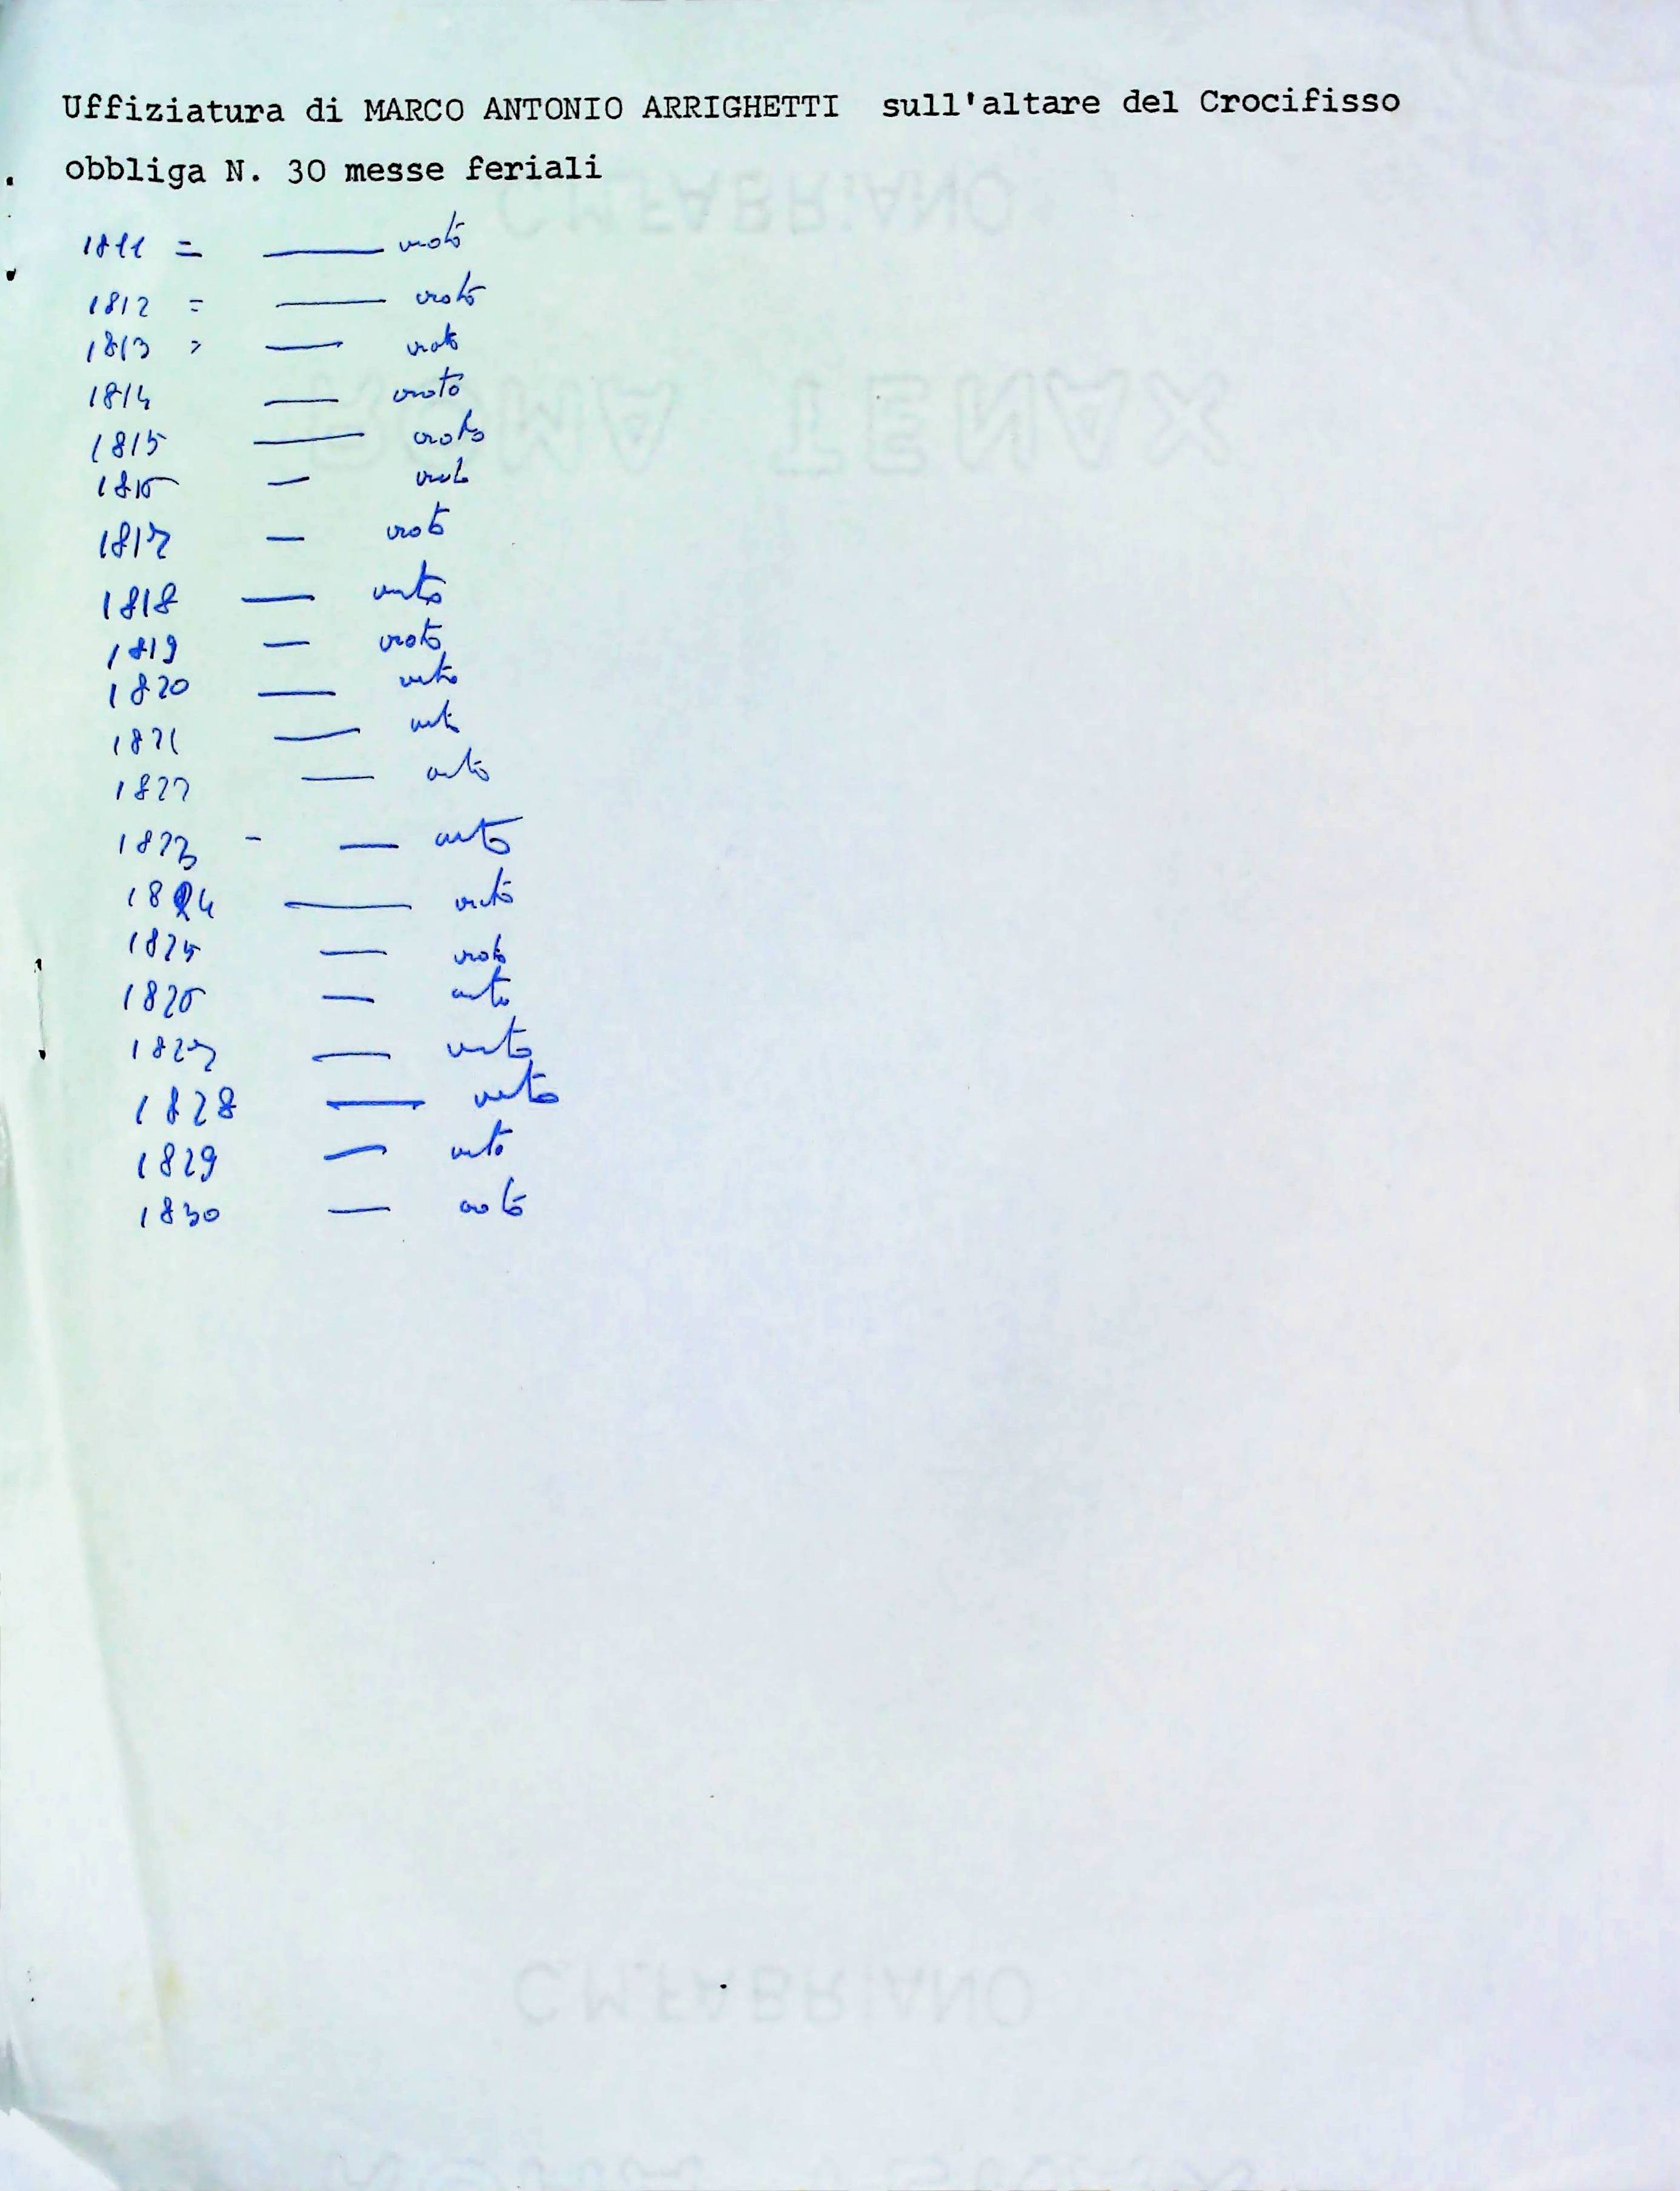 Uffiziatura di MARCO ANTONIO ARRIGHETTI sull'altare del Crocifisso
obbliga N. 30 messe feriali
C.M.FABRIANO
1811 = — vuoto
1812 = — vuoto
1813 = — vuoto
1814 — vuoto
ROMA TENAX
1815 — vuoto
1816 — vuoto
1817 — vuoto
1818 — vuoto
1819 — vuoto
1820 — vuoto
1821 — vuoto
1822 — vuoto
1823 - — vuoto
1824 — vuoto
1825 — vuoto
1826 — vuoto
1827 — vuoto
1828 — vuoto
1829 — vuoto
1830 — vuoto
C.M.FABRIANO